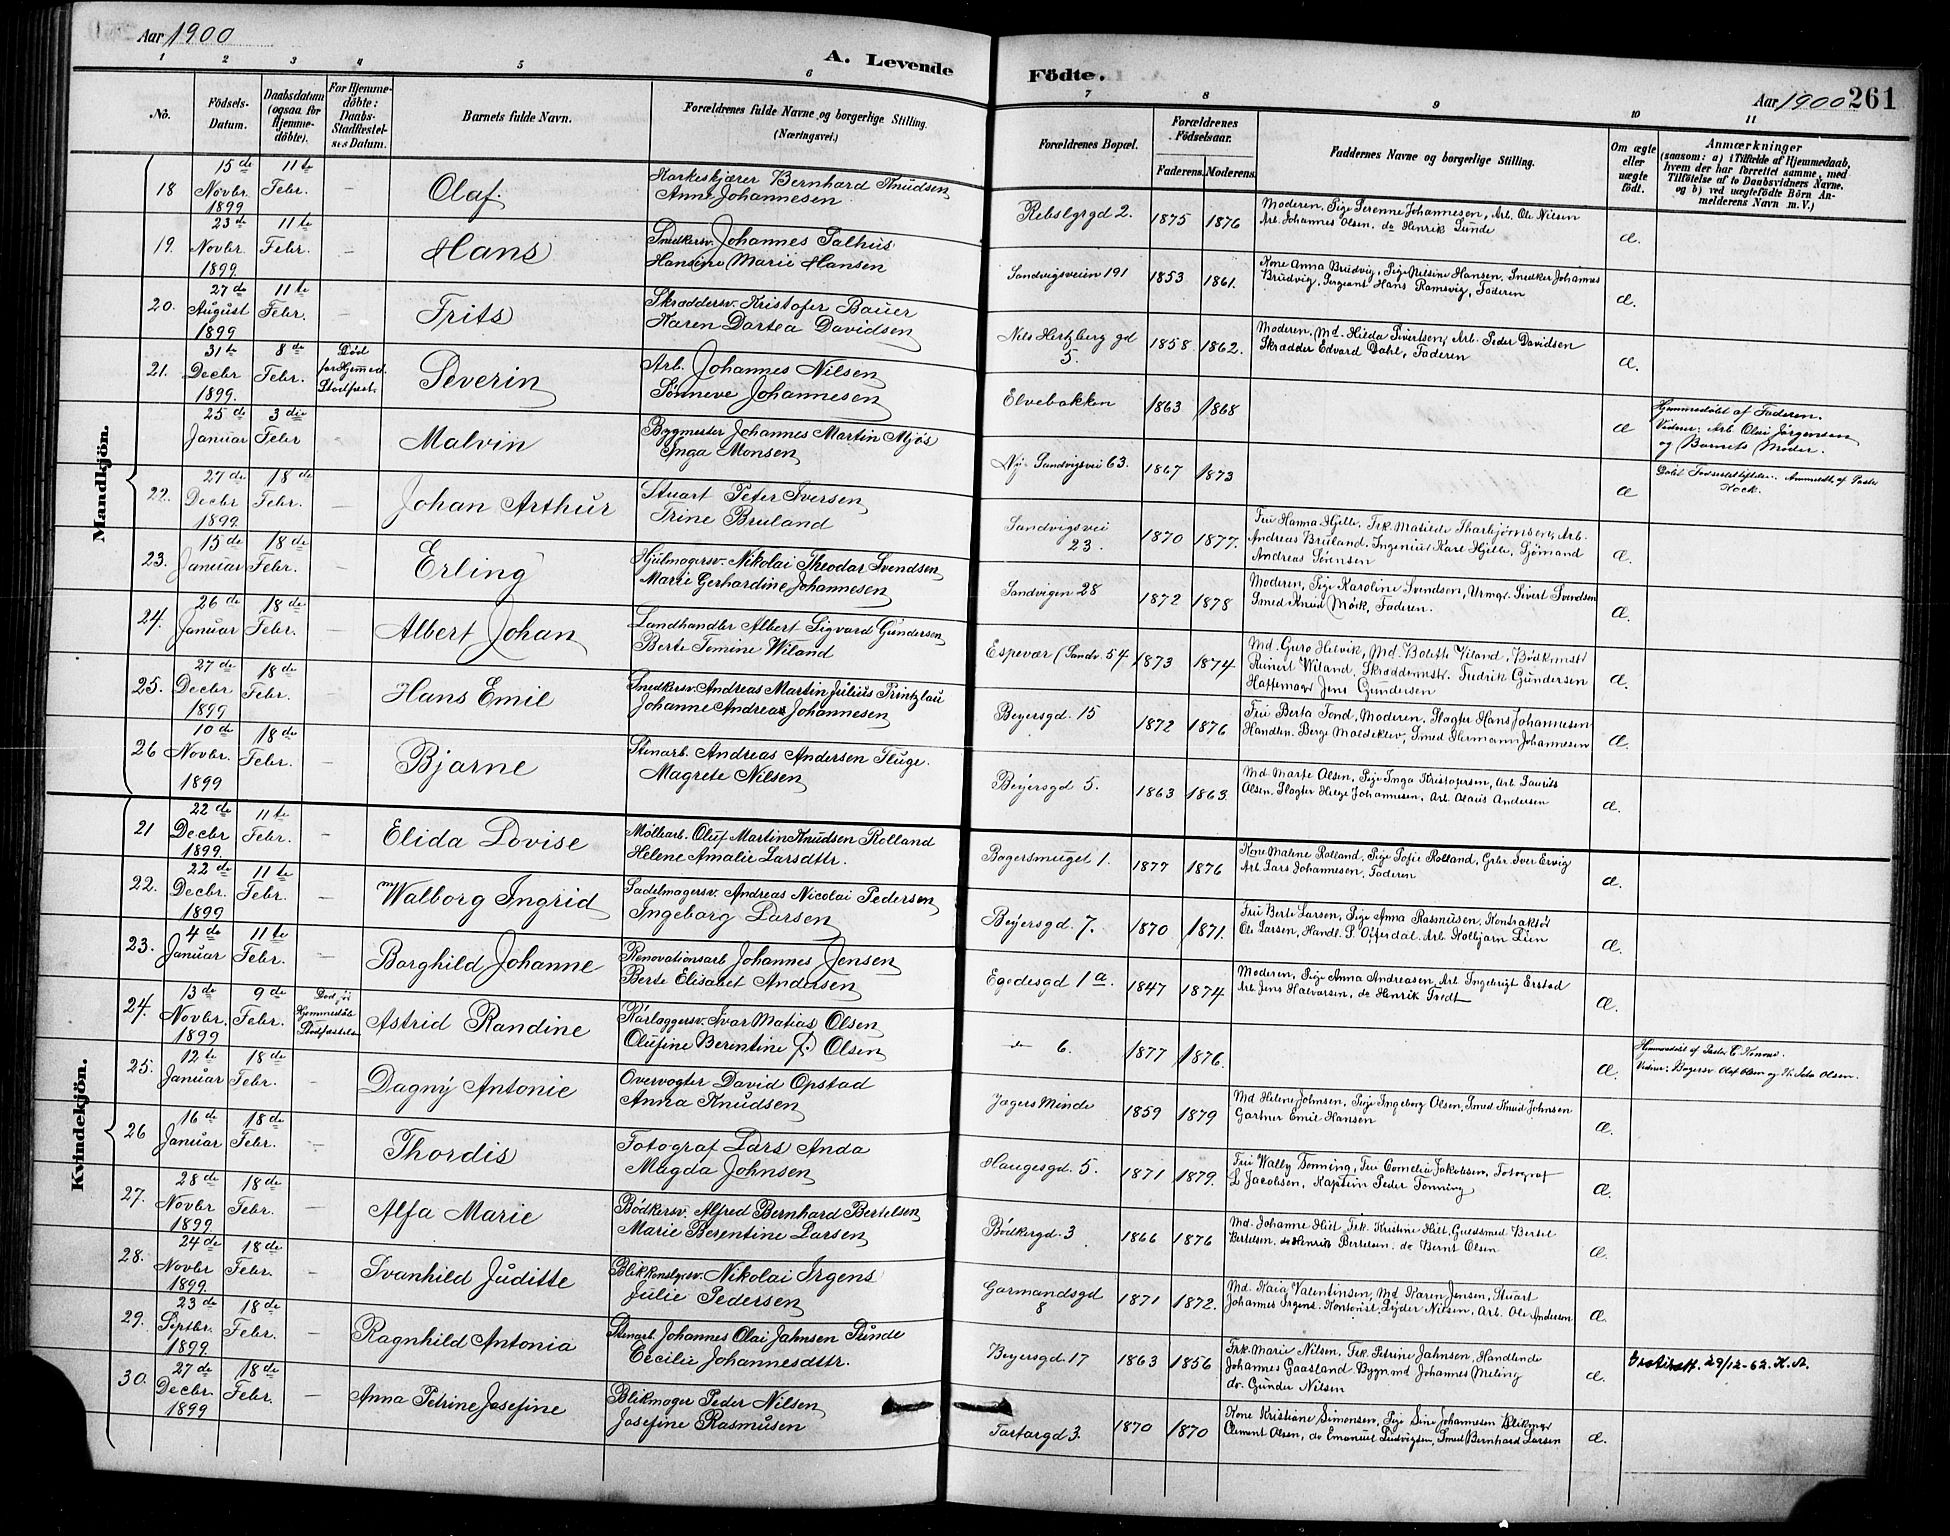 Aar 1900
A. Levende
Födte.
Aar 1900 261
1 2 3 4 5 6 7 8 9 10 11
No.
Födsels-Datum.
Daabsdatum (ogsaa for Hjemmedöbte).
For Hjemmedöbte: Daabs-Stadfæstelses Datum.
Barnets fulde Navn.
Forældrenes fulde Navne og borgerlige Stilling. (Næringsvei.)
Forældrenes Bopæl.
Forældrenes Födselsaar.
Faderens. Moderens.
Faddernes Navne og borgerlige Stilling.
Om ægte eller uægte födt.
Anmærkninger (saasom: a) i Tilfælde af Hjemmedaab, hvem der har forrettet samme, med Tilföielse af to Daabsvidners Navne, og b) ved uægtefödte Börn Anmelderens Navn m. V.)
Mandkjön.
18 15de Novbr. 1899 11te Febr. – Olaf
Korkeskjærer Bernhard Knudsen
Anne Johannesen
Rebslgrgd 2. 1875 1876
Moderen, Pige Serenne Johannesen, Arb. Ole Nilsen
Arb. Johannes Olsen, do Henrik Lunde
Æ.
19. 23de Novbr 1899. 11te Febr. – Hans
Snedkersv. Johannes Salhus
Hansine Marie Hansen
Sandvigsveien 191 1853 1861.
Kone Anna Brudvig, Pige Nilsine Hansen, Snedker Johannes
Brudvig, Sergeant Hans Ramsvig, Faderen
Æ.
20. 27de August 1899 11te Febr. – Frits
Skræddersv. Kristofer Bauer
Karen Dortea Davidsen
Nils Hertzberg gd 5. 1858 1862.
Moderen, Md. Hilda Sivertsen, Arb. Peder Davidsen
Skrædder Edvard Dahl, Faderen
Æ.
21. 31te Decbr 1899. 8de Febr. Död for Hjemmed. Stadfæst. Severin
Arb. Johannes Nilsen
Sönneve Johannesen
Elvebakken 1863 1868 Æ
Hjemmedöbt af Faderen.
Vidner: Arb. Olai Jörgensen
og Barnets Moder.
25de Januar 3die Febr Malvin
Bygmester Johannes Martin Mjös
Inga Monsen
Ny Sandvigsvei 63. 1867 1873 Æ
Döbt Födselsstiftelse. Anmeldt af Pastor
Kock.
22. 27de Decbr 1899. 18de Febr. – Johan Arthur
Stuart Peter Iversen
Trine Bruland
Sandvigsvei 23. 1870 1877.
Fru Hanna Hjelle, Frk. Matilde Tharbjörnsen, Arb.
Andreas Bruland, Ingeniör Karl Hjelle, Sjömand
Andreas Sörensen
Æ.
23. 15de Januar 18de Febr. – Erling
Hjulmagersv. Nikolai Theodor Svendsen
Marie Gerhardine Johannesen
Sandvigen 28 1872 1878
Moderen, Pige Karoline Svendsen, Urmgr. Sivert Svendsen
Smed Knud Mörk, Faderen.
Æ.
24. 26de Januar 18de Febr. – Albert Johan
Landhandler Albert Sigvard Gundersen
Berte Tomine Wiland
Espevær (Sandv. 54 1873 1874.
Md. Guro Helvik, Md. Bolette Wiland, Bödkermstr
Reinert Wiland, Skræddermstr. Fredrik Gundersen
Hattemagr Jens Gundersen
Æ.
25. 27de Decbr. 1899 18de Febr. – Hans Emil
Snedkersv. Andreas Martin Julius Printzlau
Johanne Andreas Johannesen
Beyersgd. 15 1872 1876
Fru Berta Tond, Moderen, Slagter Hans Johannesen
Handlen. Berge Maldeklev, Smed Hermann Johannesen
Æ.
26 10de Novbr. 1899 18de Febr. – Bjarne
Stenarb. Andreas Andersen Fluge.
Magrete Nilsen
Beyersgd 5. 1863 1863.
Md Marte Olsen, Pige Inga Kristofersen, Arb. Laurits
Olsen, Slagter Helge Johannesen, Arb. Olaus Andersen
Æ.
Kvindekjön.
21 22de Decbr 1899. 11te Febr. – Elida Lovise
Möllearb. Oluf Martin Knudsen Rolland
Helene Amalie Larsdttr.
Bagersmuget 1. 1877 1876
Kone Malene Rolland, Pige Sofie Rolland, Grbr. Iver Ervig
Arb. Lars Johannesen, Faderen
Æ.
22. 22de Decbr. 1899 11te Febr. – Walborg Ingrid
Sadelmagersv. Andreas Nicolai Pedersen
Ingeborg Larsen
Beyersgd. 7. 1870 1871.
Fru Berte Larsen, Pige Anna Rasmusen, Kontraktör
Ole Larsen, Handl. P. Offerdal. Arb. Kolbjörn Lien
Æ.
23. 4de Januar 11te Febr. – Borghild Johanne
Renovationsarb. Johannes Jensen
Berte Elisabet Andersen
Egedesgd 1a. 1847 1874
Moderen, Pige Anna Andreasen, Arb. Ingebrigt Erstad
Arb. Jens Halvorsen, do Henrik Tredt
Æ.
24. 13de Novbr. 1899 9de Febr. Död för Hjemmedöb Stadfæstelse Astrid Randine
Rörlæggersv. Ivar Matias Olsen
Olufine Berentine Olsen
do 6. 1877 1876. Æ.
Hjemmedöbt af Pastor C. Konow.
Vidner: Bagersv. Olaf Olsen og Pi. Ida Olsen.
25. 12te Januar 18de Febr. – Dagny Antonie
Overvogter David Opstad
Anna Knudsen
Jægers Minde 1859 1879
Md Helene Johnsen, Pige Ingeborg Olsen, Smed Knud Johnsen
Gartner Emil Hansen
Æ.
26 16de Januar 18de Febr. – Thordis
Fotograf Lars Anda
Magda Johnsen
Haugesgd. 5. 1871 1879.
Fru Wally Tonning, Fru Cornelia Jakobsen, Fotograf
L Jacobsen, Kaptein Peder Tonning
Æ.
27. 28de Novbr 1899 18de Febr. – Alfa Marie
Bödkersv. Alfred Bernhard Bertelsen
Marie Berentine Larsen
Bödkergd. 3 1866 1876
Md. Johanne Hilt, Frk. Kristine Hilt, Guldsmed Bertel
Bertelsen, do Henrik Bertelsen, do Bernt Olsen
Æ.
28. 24de Novbr 1899. 18de Febr. – Svanhild Juditte
Blikkenslgrsv. Nikolai Irgens
Julie Pedersen
Gormandsgd 8 1871 1872.
Md. Kaia Valentinsen, Md Karen Jensen, Stuart
Johannes Irgens, Kontorist Lyder Nilsen, Arb. Ole Andersen
Æ.
29. 23de Septbr. 1899. 18de Febr. – Ragnhild Antonia
Stenarb. Johannes Olai Jahnsen Sunde
Cecilie Johannesdttr.
Beyersgd. 17 1863 1856
Frk. Marie Nilsen, Frk. Petrine Jahnsen, Handlende
Johannes Gaasland, Bygn.md Johannes Meling
do. Gunder Nilsen
Æ.
29/12-62. K.A.
30. 27de Decbr. 1899 18de Febr. – Anna Petrine Josefine
Blikmager Peder Nilsen
Josefine Rasmusen
Tartargd 3. 1870 1870
Kone Kristiane Simonsen, Pige Sine Johannesen Blikmgr
Clement Olsen, do Emanuel Ludvigsen, Smed Bernhard Larsen
Æ.